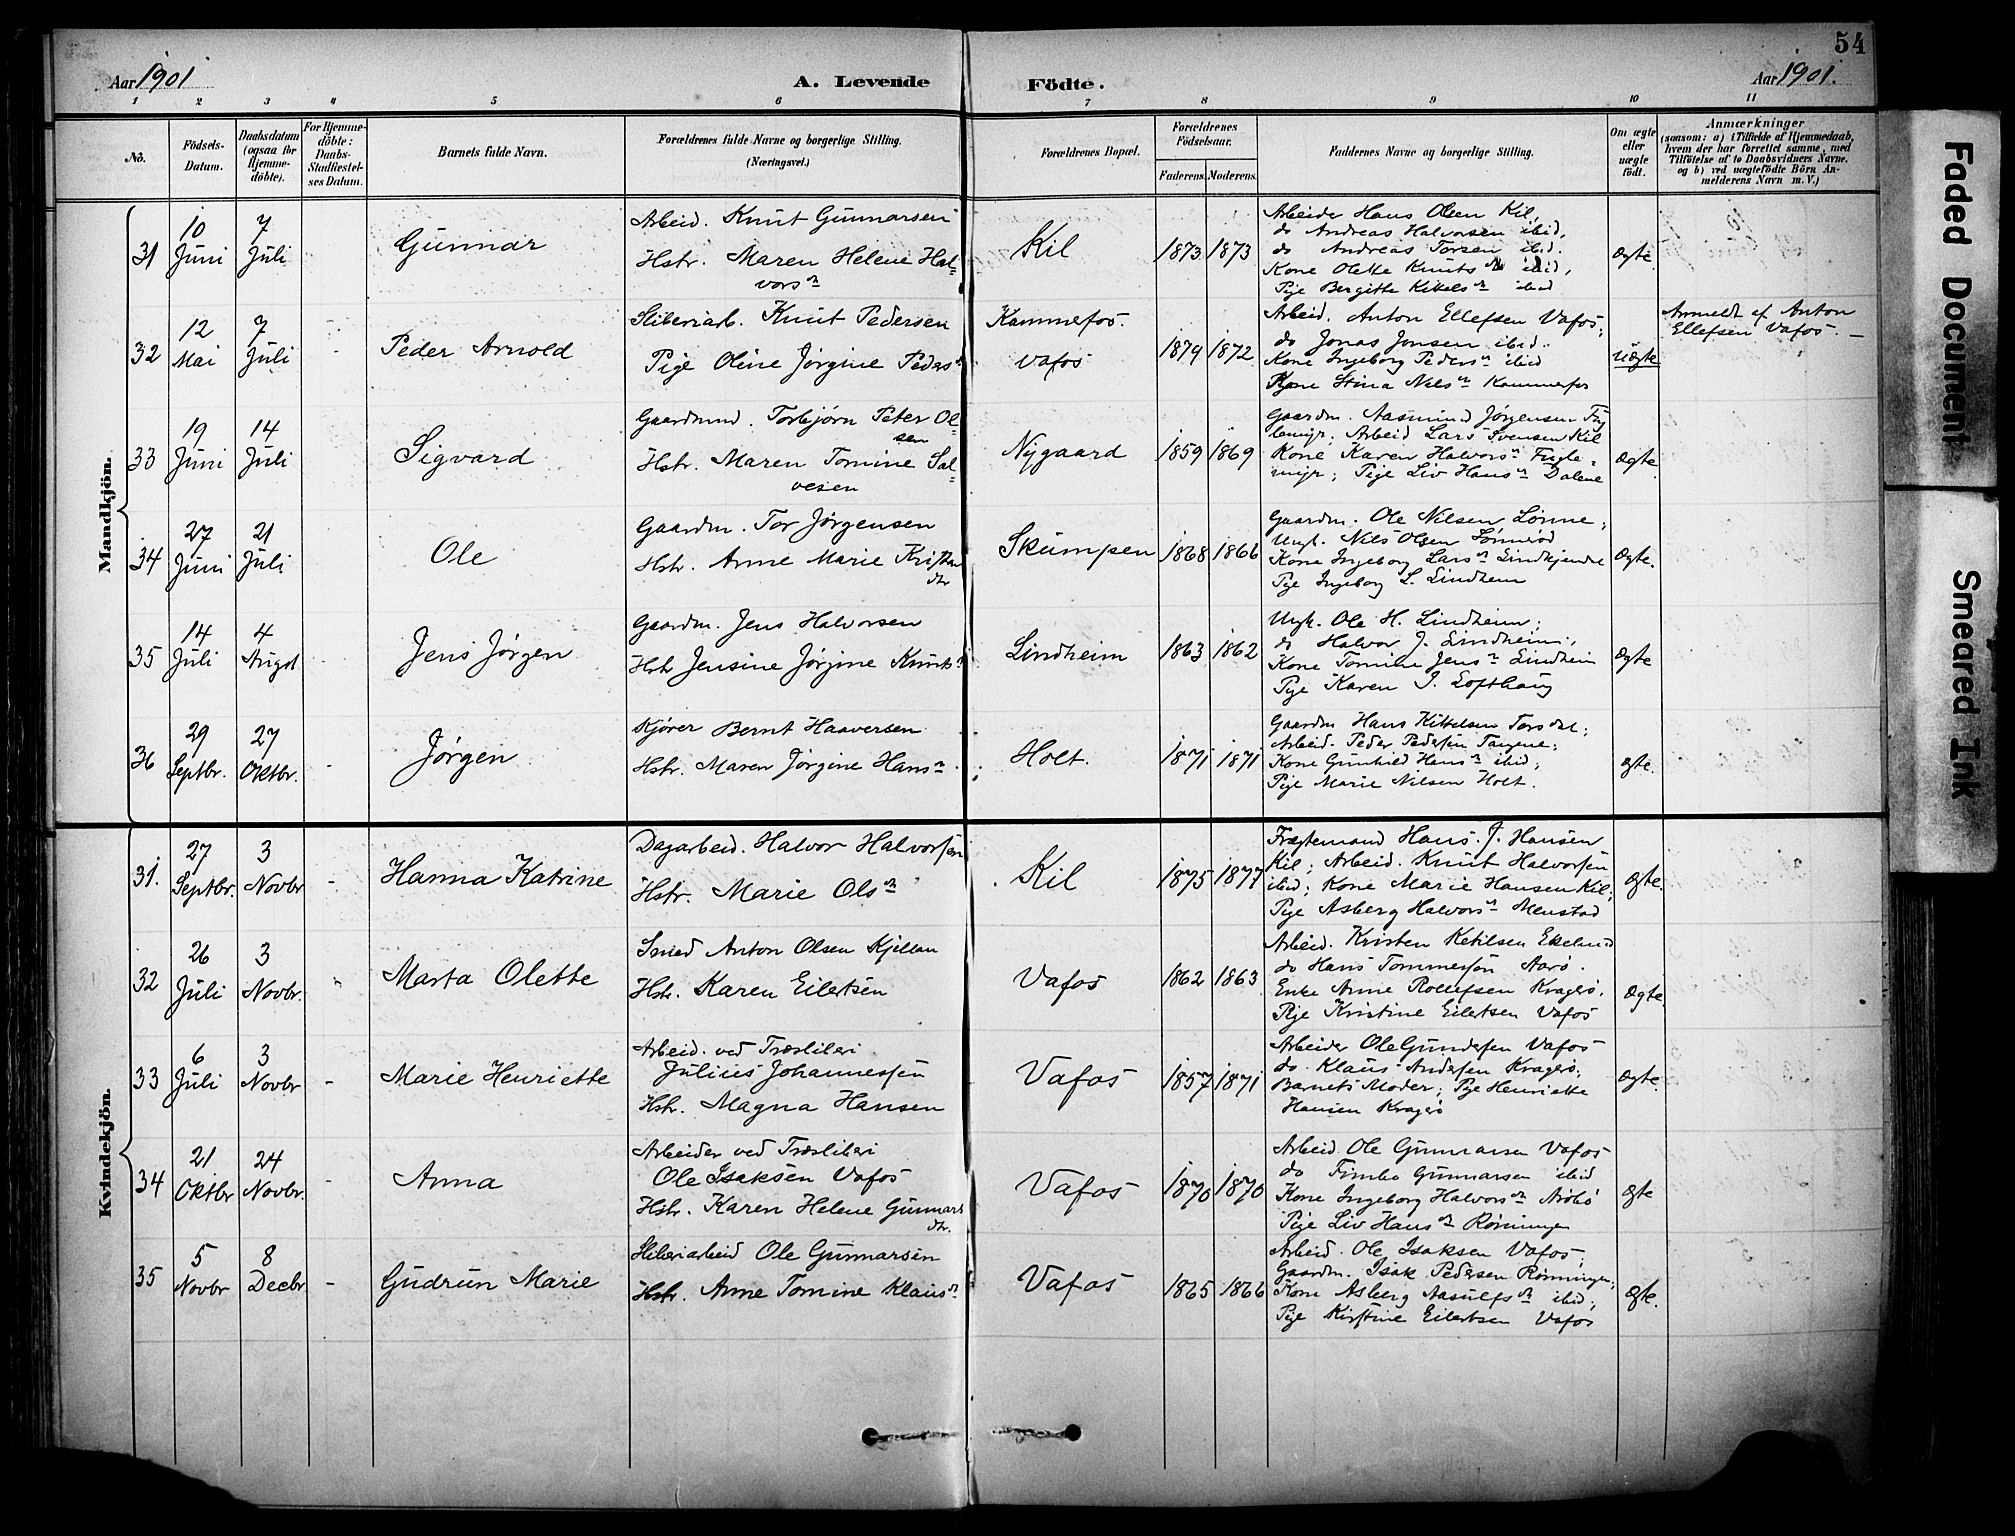 54
Aar 1901
A. Levende
Födte.
Aar 1901.
1 2 3 4 5 6 7 8 9 10 11
Nô.
Födsels-
Datum.
Daabsdatum
(ogsaa for
Hjemme-
döbte).
For Hjemme-
döbte:
Daabs-
Stadfæstel-
ses Datum.
Barnets fulde Navn.
Forældrenes fulde Navne og borgerlige Stilling.
(Næringsvei.)
Forældrenes Bopæl.
Forældrenes
Födselsaar.
Faderens. Moderens.
Faddernes Navne og borgerlige Stilling.
Om ægte
eller
uægte
födt.
Anmærkninger
(saasom: a) i Tilfælde af Hjemmedaab,
hvem der har forrettet samme, med
Tilföielse af to Daabsvidners Navne,
og b) ved uægtefödte Börn An-
melderens Navn m. V.)
Mandkjön.
31
10
Juni
7
Juli
Gunnar
Arbeid. Knut Gunnarsen
Hstr. Maren Helene Hal-
vorsdr
Kil
1873 1873
Arbeider Hans Olsen Kil,
do Andreas Halvorsen ibid,
do Andreas Torsen ibid.
Kone Olette Knutsdr ibid,
Pige Bergitte Kittelsdr ibid
Ægte.
32
12
Mai
7
Juli
-
Peder Arnold
Sliberiarb. Knut Pedersen
Pige Oline Jørgine Pedersdr
Kammefos.
Vafos
1879 1872
Arbeid. Anton Ellefsen Vafos;
do Jonas Jonsen ibid..
Kone Ingeborg Pedersdr ibid
Kone Stina Nilsdr Kammefos
Uægte
Anmeldt af Anton
Ellefsen Vafos. —
33
19
Juni
14
Juli
Sigvard
Gaardmd. Torbjørn Peter Ol-
sen
Hstr. Maren Tomine Sal-
vesen
Nygaard
1859 1869
Gaardm. Aasmund Jørgensen Fug
lemyr; Arbeid Lars Svensen Kil
Kone Karen Halvorsdr Fugle-
myr; Pige Liv Hansdr Dalene
Ægte.
34
27
Juni
21
Juli
Ole
Gaardm. Tor Jørgensen
Hstr. Anne Marie Kristen
dtr
Skumpen
1868 1866
Gaardm. Ole Nilsen Lønne;
Ungk. Nils Olsen
Kone Ingeborg Larsdr Lindkjendre
Pige Ingeborg L. Lindheim
Ægte.
35
14
Juli
4
Augst
Jens Jørgen
Gaardm. Jens Halvorsen
Hstr Jensine Jørgine Knutsdr
Lindheim
1863 1862
Ungk. Ole H. Lindheim;
do Halvor J. Lindheim;
Kone Tomine Jensdr Lindheim
Pige Karen J. Lofthaug
Ægte
36
29
Septbr.
27
Oktbr.
-
Jørgen
Kjører Bernt Haaversen
Hstr. Maren Jørgine Hansdr
Holt.
1871 1871
Gaardm Hans Kittelsen Torsdal;
Arbeid. Peder Pedersen Tangene;
Kone Gunhild Hansdr ibid;
Pige Marie Nilsen Holt.
Ægte.
Kvindekjön.
31.
27
Septbr.
3
Novbr
-
Hanna Katrine
Dagarbeid. Halvor Halvorsen
Hstr. Marie Olsdr
Kil
1875 1877
Frægtemand Hans J. Hansen
Kil; Arbeid. Knut Halvorsen
ibid; Kone Marie Hansen Kil;
Pige Asberg Halvorsdr Menstad
Ægte.
32
26
Juli
3
Novbr.
Marta Olette
Smed Anton Olsen Kjellau
Hstr. Karen Eilertsen
Vafos
1862 1863
Arbeid. Kristen Ketilsen Ekelund
do Hans Tommersøn Aarø.
Enke Anne Rollefsen Kragerø.
Pige Kristine Eilertsen Vafos
Ægte
33
6
Juli
3
Novbr
-
Marie Henriette
Arbeid. ved Træsliberi
Julius Johannessen
Hstr. Magna Hansen
Vafos
1857 1871
Arbeider Ole Gundersen Vafos
do. Klaus Andersen Kragerø;
Barnets Moder; Pige Henriette
Hansen Kragerø
Ægte.
34
21
Oktbr
24
Novbr.
-
Anna
Arbeider ved Træsliberi
Ole Isaksen Vafos
Hstr. Karen Helene Gunnars
dtr.
Vafos
1870 1870
Arbeid Ole Gunnarsen Vafos
do Timbo Gunnarsen ibid
Kone Ingeborg Halvorsdr Arøbø
Pige Liv Hansdr Rønningen
Ægte
35
5
Novbr
8
Decbr
-
Gudrun Marie
Sliberiarbeid Ole Gunnarsen
Hstr. Anne Tomine Klausdr
Vafos
1865 1866
Arbeid. Ole Isaksen Vafos;
Gaardm. Isak Pedersen Rønningen;
Kone Asberg Aasulfsdr ibid;
Pige Kirstine Eilertsen Vafos
Ægte.
Faded Document
Smeared Ink